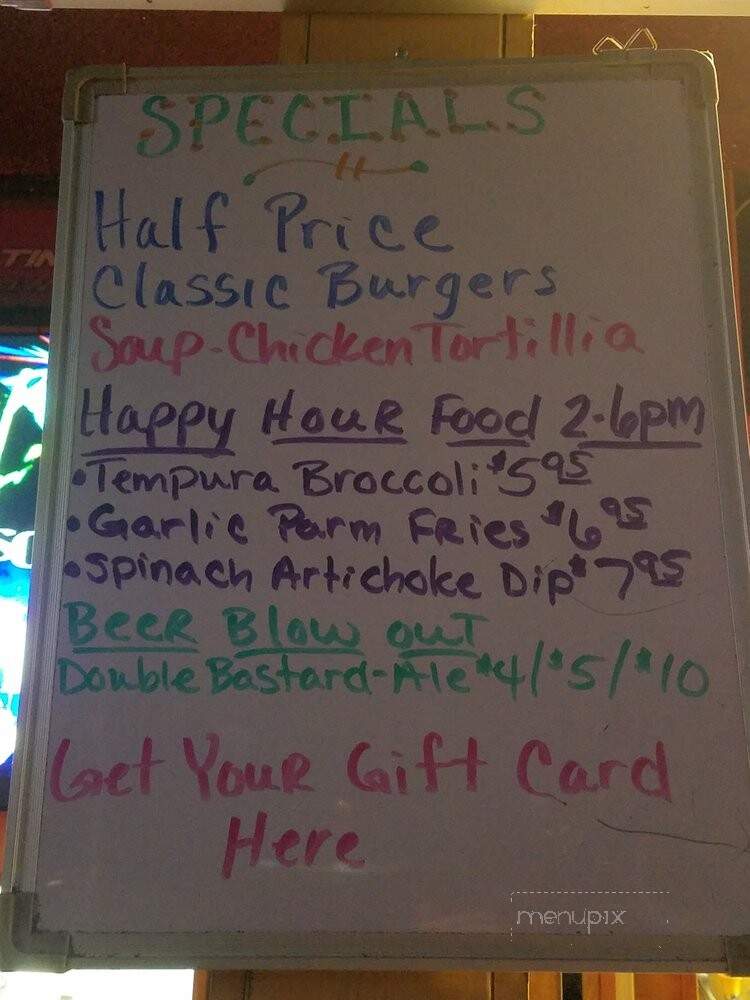 SPECIALS
Half Price
Classic Burgers
Soup-Chicken Tortillia
Happy Hour Food 2-6pm
•Tempura Broccoli $5.95
•Garlic Parm Fries $6.95
•Spinach Artichoke Dip $7.95
Beer Blow out
Double Bastard-Ale $4/$5/$10
Get Your Gift Card
Here
menupix
TIN